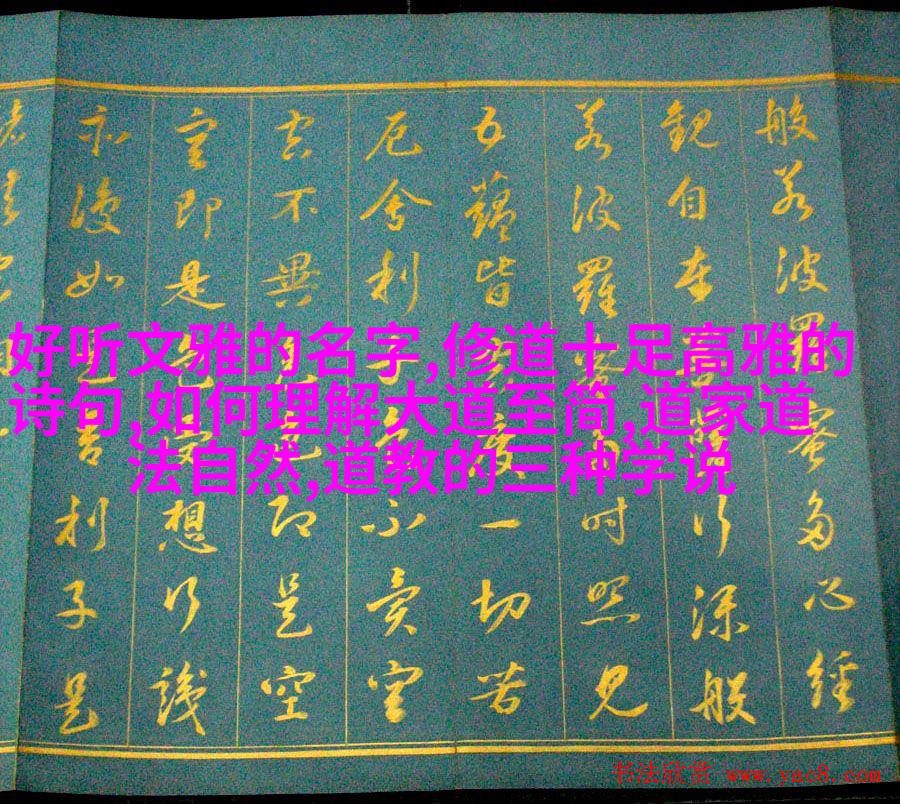 般若波羅蜜多心經
觀自在菩薩行深般
若波羅蜜多時照見
五蘊皆空度一切苦
厄舍利子色不異空
空不異色色即是空
空即是色受想行識
亦復如是舍利子是
好听文雅的名字,修道十足高雅的
诗句,如何理解大道至简,道家道
法自然,道教的三种学说
书法欣赏 www.yac8.com